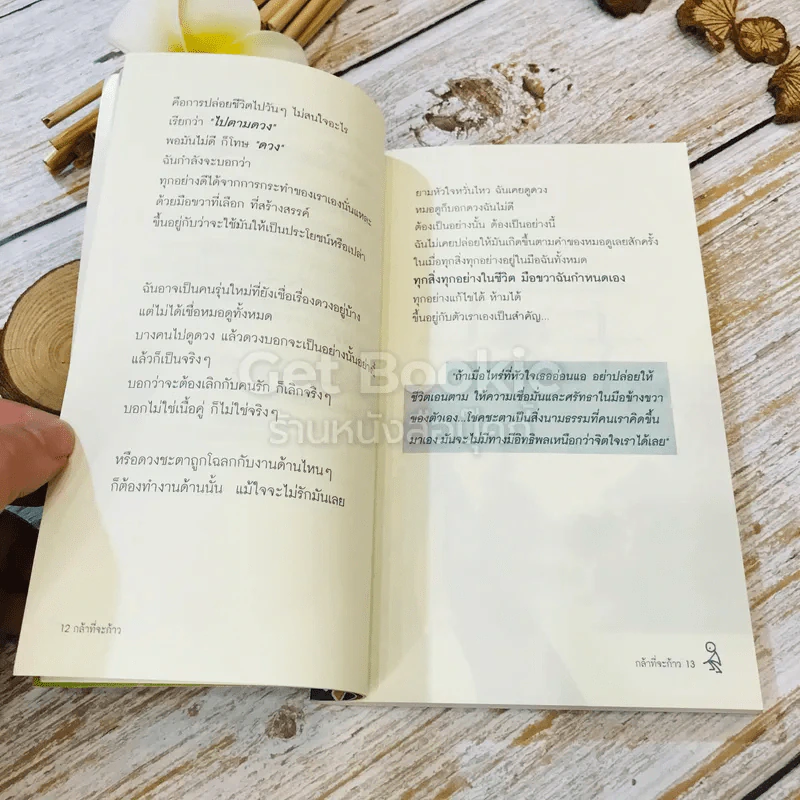 คือการปล่อยชีวิตไปวันๆ ไม่สนใจอะไร
เรียกว่า "ไปตามดวง"
พอมันไม่ดี ก็โทษ "ดวง"
ฉันกำลังจะบอกว่า
ทุกอย่างดีได้จากการกระทำของเราเองนั่นแหละ
ด้วยมือขวาที่เลือก ที่สร้างสรรค์
ขึ้นอยู่กับว่าจะใช้มันให้เป็นประโยชน์หรือเปล่า
ฉันอาจเป็นคนรุ่นใหม่ที่ยังเชื่อเรื่องดวงอยู่บ้าง
แต่ไม่ได้เชื่อหมอดูทั้งหมด
บางคนไปดูดวง แล้วดวงบอกจะเป็นอย่างนั้นอย่างนี้
แล้วก็เป็นจริงๆ
บอกว่าจะต้องเลิกกับคนรัก ก็เลิกจริงๆ
บอกไม่ใช่เนื้อคู่ ก็ไม่ใช่จริงๆ
หรือดวงชะตาถูกโฉลกกับงานด้านไหนๆ
ก็ต้องทำงานด้านนั้น แม้ใจจะไม่รักมันเลย
12 กล้าที่จะก้าว
ยามหัวใจหวั่นไหว ฉันเคยดูดวง
หมอดูก็บอกดวงฉันไม่ดี
ต้องเป็นอย่างนั้น ต้องเป็นอย่างนี้
ฉันไม่เคยปล่อยให้มันเกิดขึ้นตามคำของหมอดูเลยสักครั้ง
ในเมื่อทุกสิ่งทุกอย่างอยู่ในมือฉันทั้งหมด
ทุกสิ่งทุกอย่างในชีวิต มือขวาฉันกำหนดเอง
ทุกอย่างแก้ไขได้ ห้ามได้
ขึ้นอยู่กับตัวเราเองเป็นสำคัญ...
"ถ้าเมื่อไหร่ที่หัวใจเธออ่อนแอ อย่าปล่อยให้
ชีวิตเอนตาม ให้ความเชื่อมั่นและศรัทธาในมือข้างขวา
ของตัวเอง...โชคชะตาเป็นสิ่งนามธรรมที่คนเราคิดขึ้น
มาเอง มันจะไม่มีทางมีอิทธิพลเหนือกว่าจิตใจเราได้เลย"
กล้าที่จะก้าว 13
Get Bookie
ร้านหนังสือมุกกี้